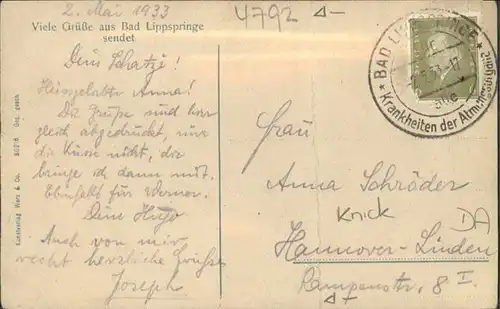 2. Mai 1933
4792
Viele Grüße aus Bad Lippspringe
sendet
Dein Schatzi!
Heißgeliebte Anna!
Die Grüße sind hier
gleich abgedruckt, nur
die Küsse nicht, die
bringe ich dann mit.
Ebenfalls für Werner.
Dein Hugo
Auch von mir
recht herzliche Grüße
Joseph
Kunstverlag Wurz & Co. Ges. gesch.
* BAD LIPPSPRINGE *
Krankheiten der Atmungsorgane
Frau
Anna Schröder
Knick
DA
Hannover-Linden
8 I.